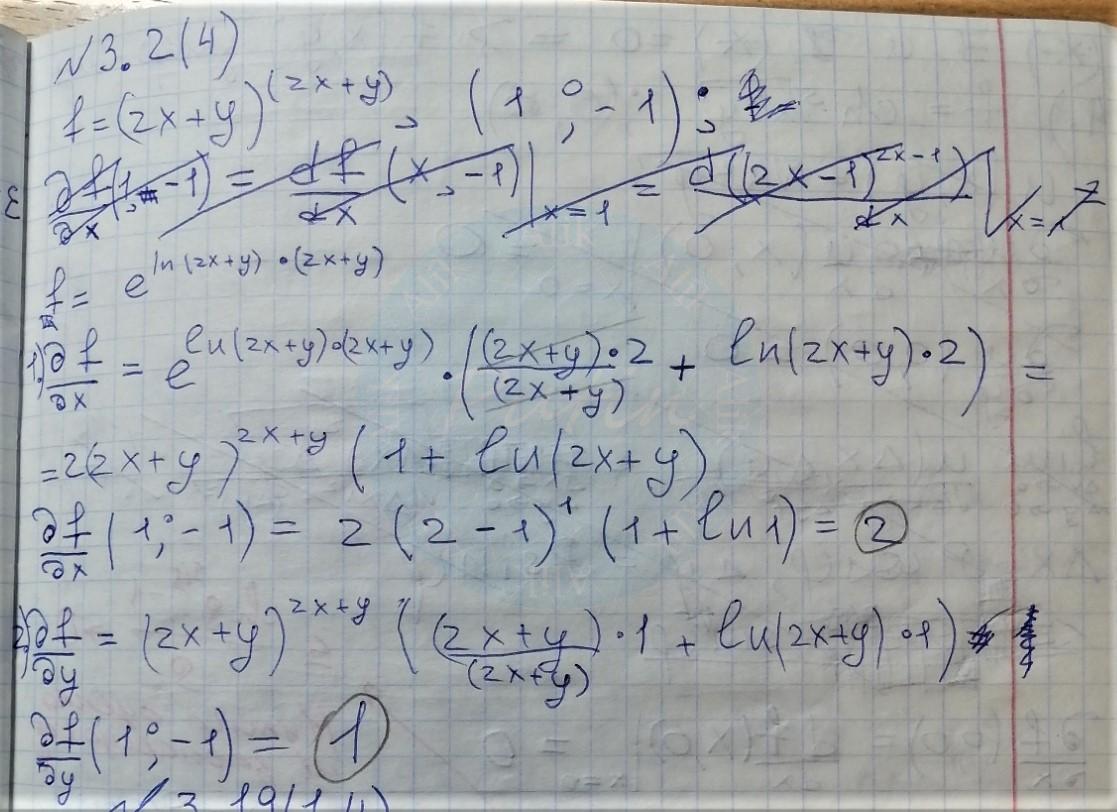 N3.2(4)
f=(2x+y)^(2x+y), (1;-1);
∂f/∂x(1,-1) = df/dx(x,-1)|x=1 = d((2x-1)^2x-1)/dx|x=1
f= e^ln(2x+y)·(2x+y)
1) ∂f/∂x = e^ln(2x+y)·(2x+y) · ((2x+y)·2/(2x+y) + ln(2x+y)·2) =
=2(2x+y)^2x+y (1+ ln(2x+y)
∂f/∂x (1;-1) = 2(2-1)^1 (1+ln1) = 2
2) ∂f/∂y = (2x+y)^2x+y ((2x+y)·1/(2x+y) + ln(2x+y)·1)
∂f/∂y (1;-1) = 1
N3.19(1,4)